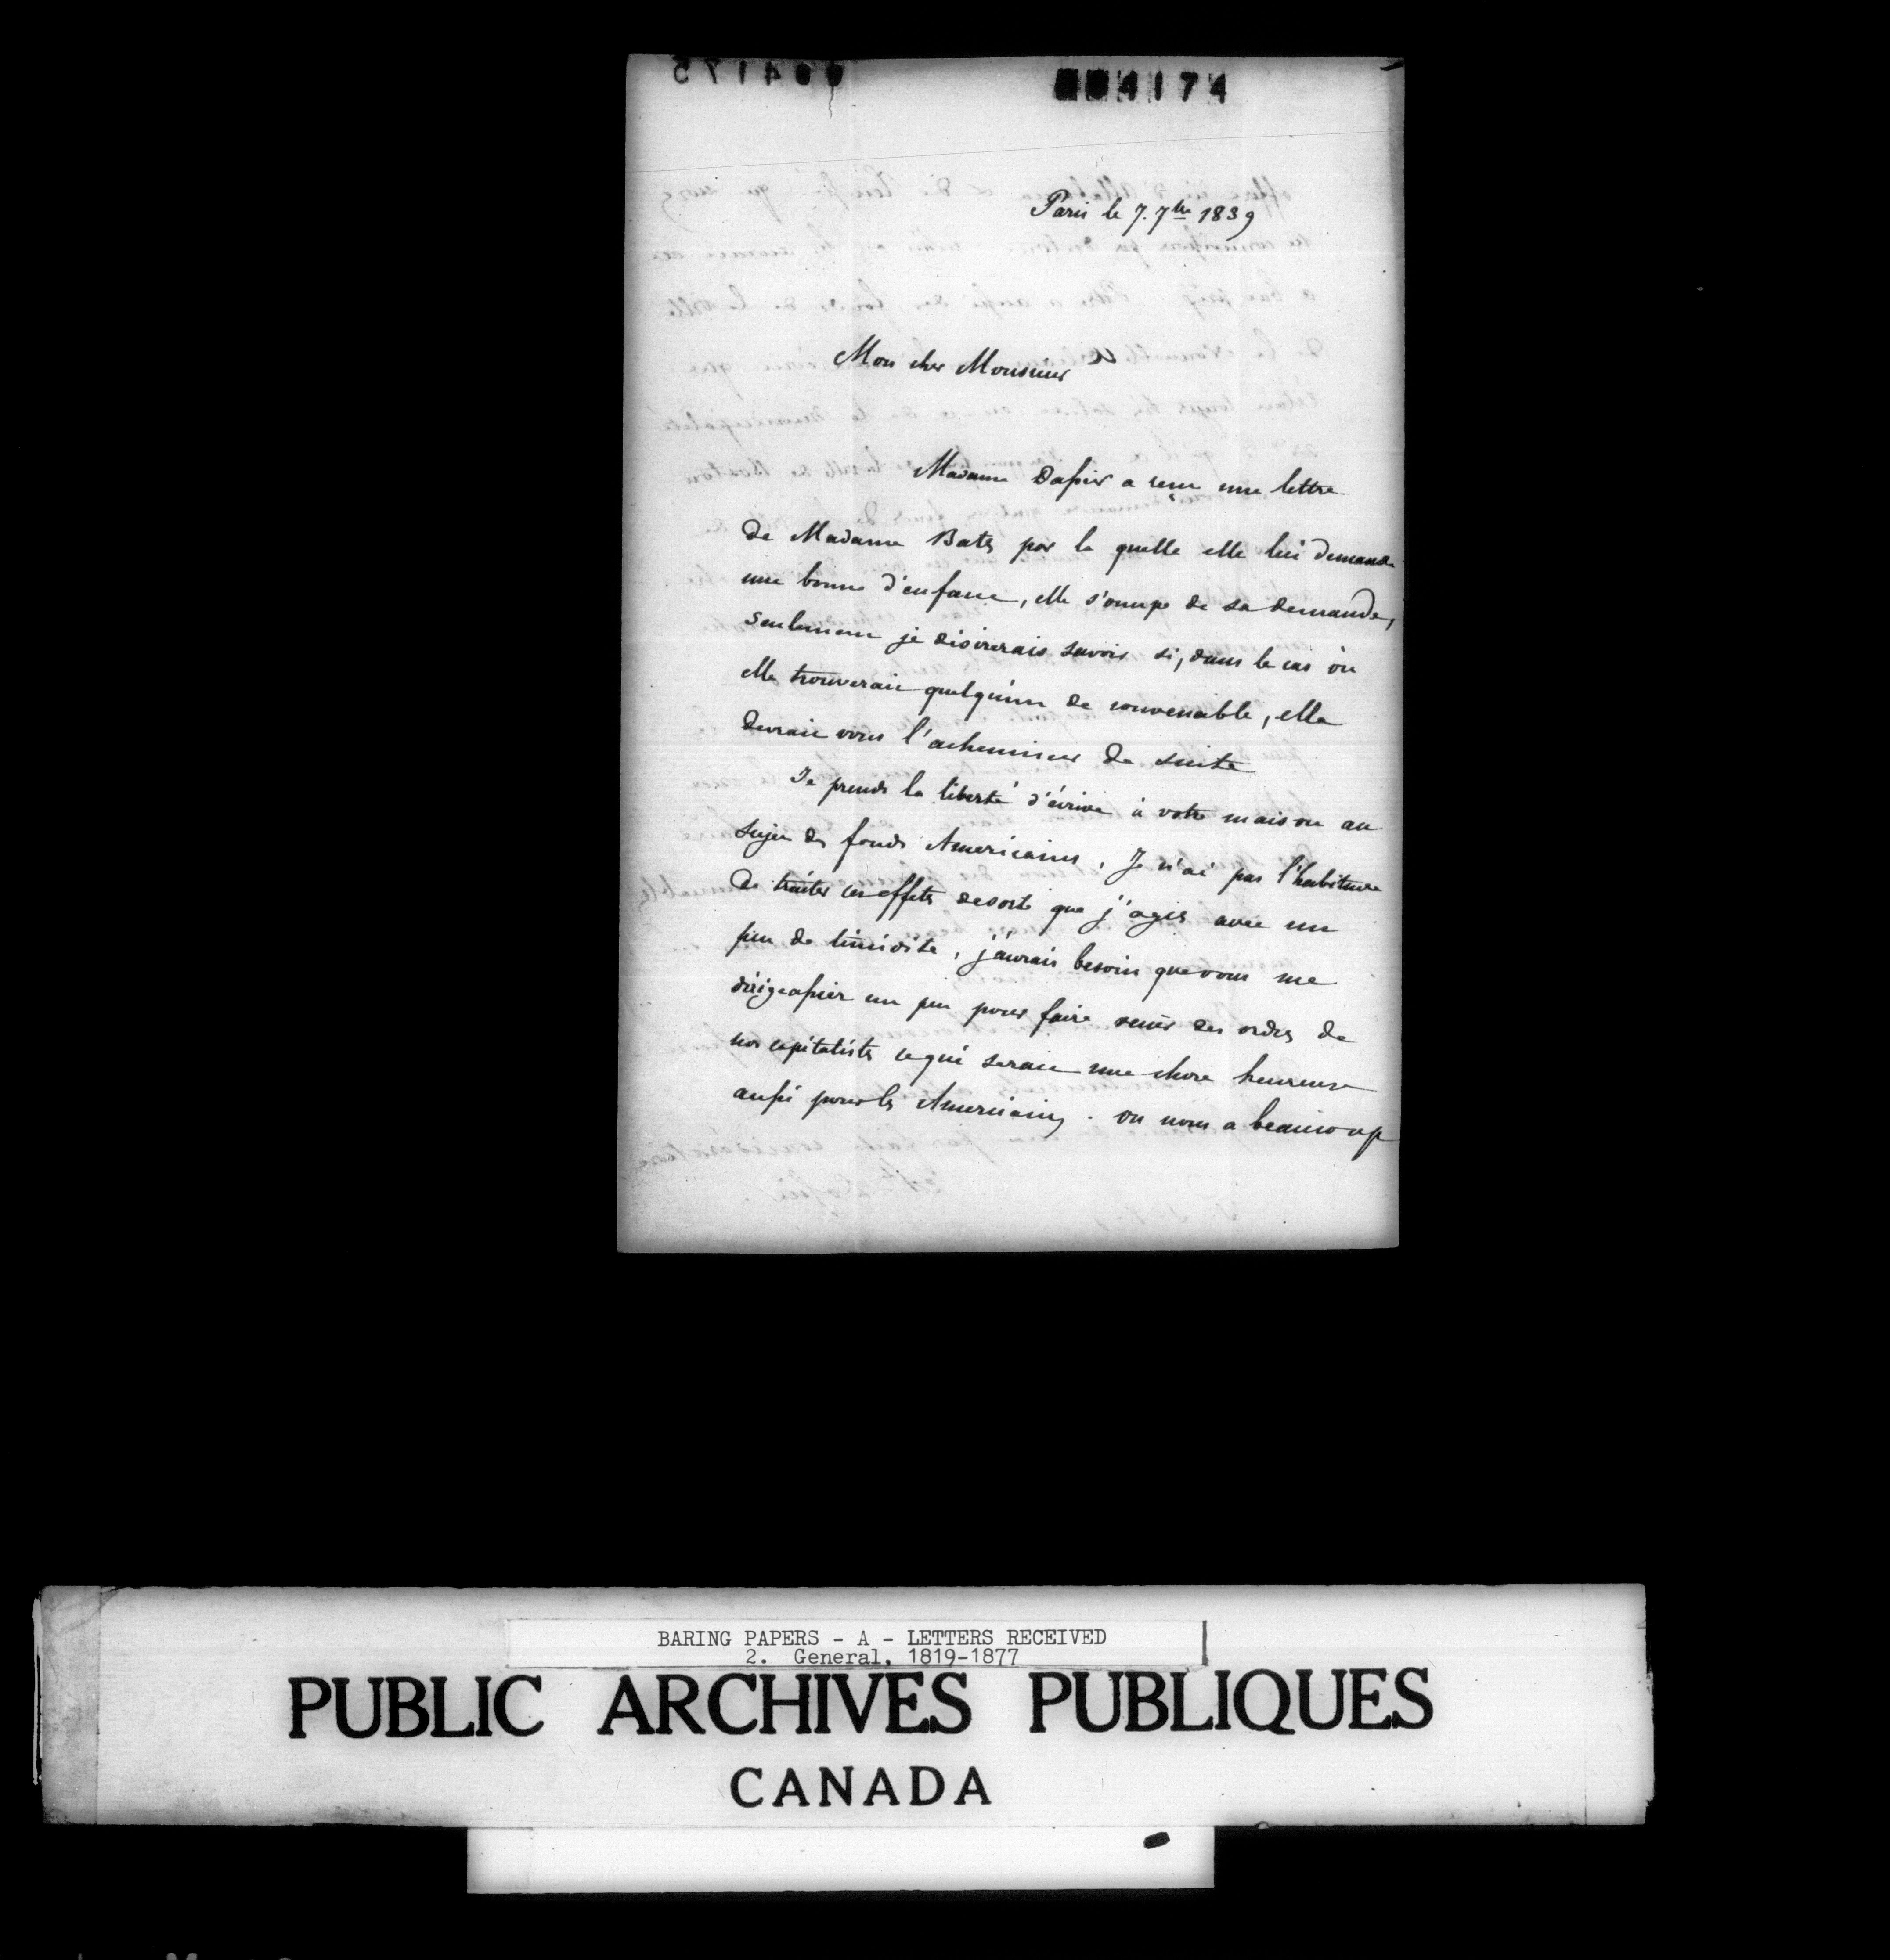 004175
004174
Paris le 7. 7bre 1839
Mon cher Monsieur
Madame Dassier a recu une lettre
de Madame Bates par la quelle elle lui demande
une bonne d'enfance, elle s'occupe de sa demande,
seulement je désirerais savoir si, dans le cas où
elle trouverait quelqu'un de convenable, elle
devrait vous l'acheminer de suite
Je prends la liberté d'écrire à votre maison au
sujet des fonds Americains. Je n'ai pas l'habitude
de traiter ces effets desorte que j'agis avec un
peu de timidité, j'aurais besoin que vous me
dirigeassiez un peu pour faire venir des ordres de
nos capitalistes ce qui serait une chose heureuse
aussi pour les Americains. on nous a beaucoup
BARING PAPERS - A - LETTERS RECEIVED
2. General, 1819-1877
PUBLIC ARCHIVES PUBLIQUES
CANADA